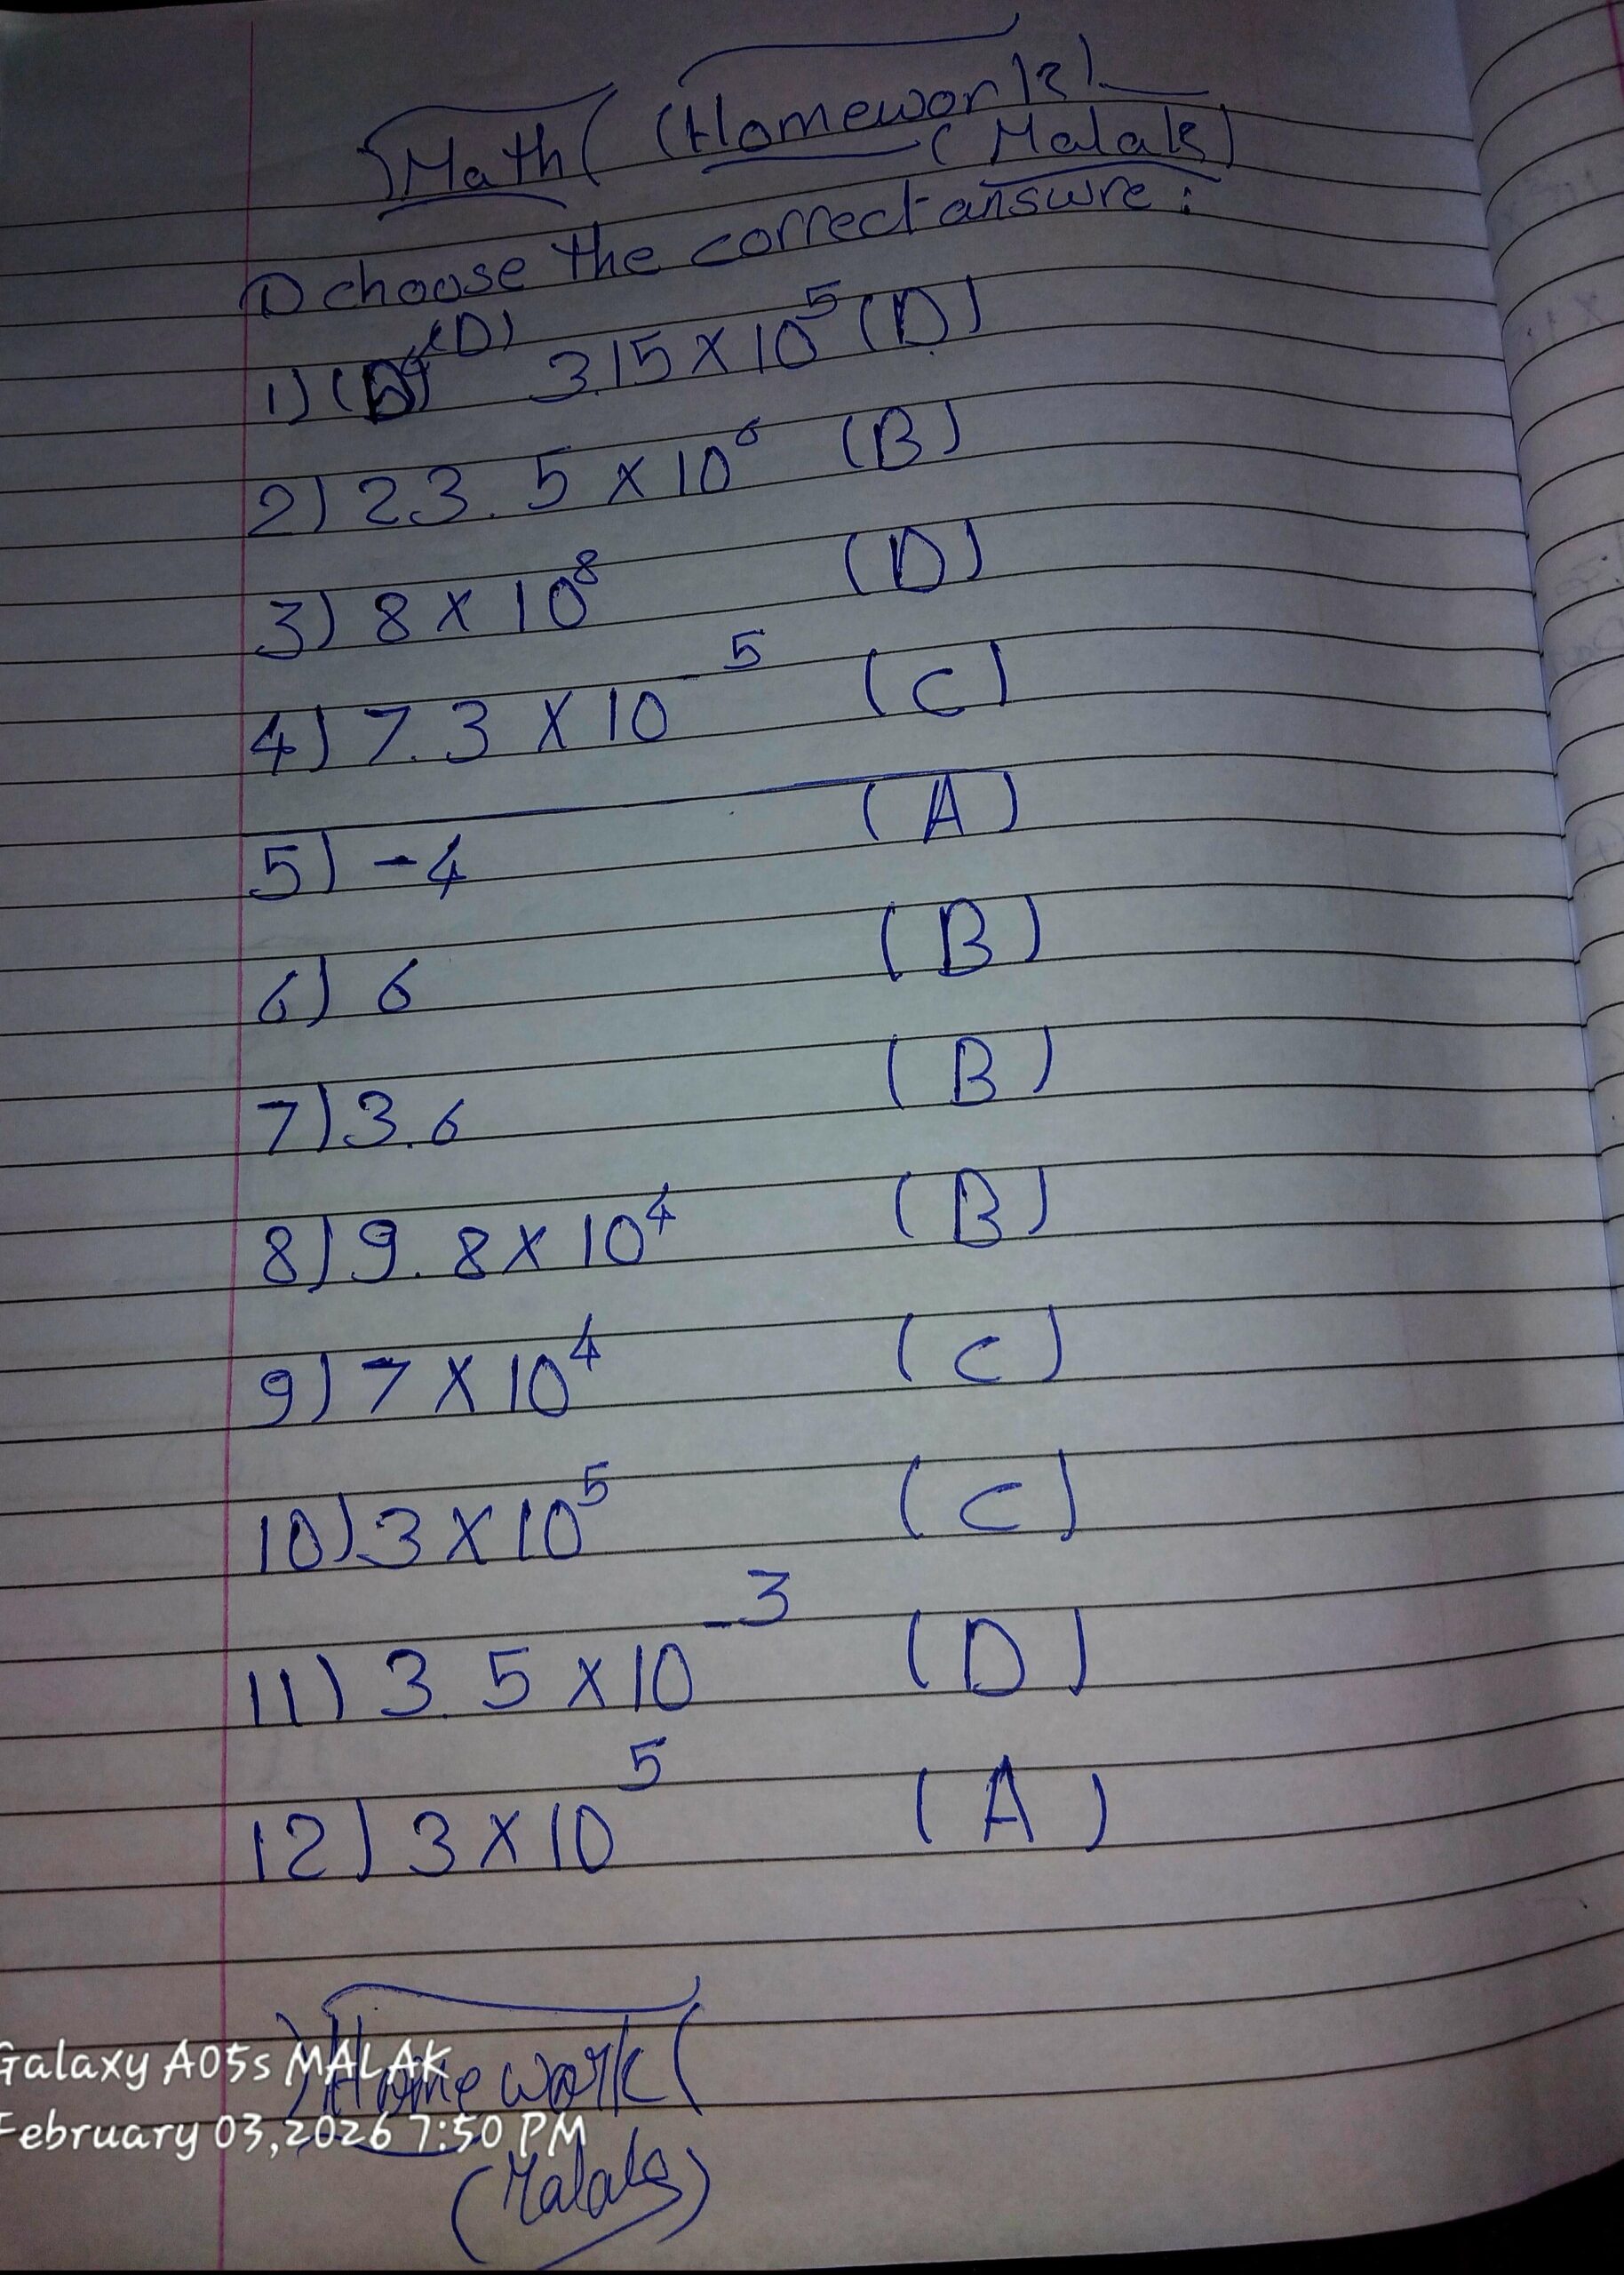 Math (Homework)
(Malak)
① choose the correct answre :
1) (D) 3.15 × 10⁵ (D)
2) 23.5 × 10⁶ (B)
3) 8 × 10⁸ (D)
4) 7.3 × 10⁻⁵ (C)
5) -4 (A)
6) 6 (B)
7) 3.6 (B)
8) 9.8 × 10⁴ (B)
9) 7 × 10⁴ (C)
10) 3 × 10⁵ (C)
11) 3.5 × 10⁻³ (D)
12) 3 × 10⁵ (A)
Home work
(Malak)
Galaxy A05s MALAK
February 03,2026 7:50 PM